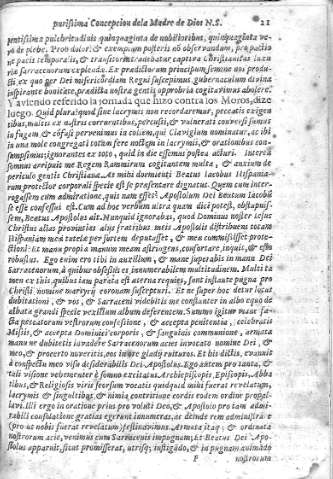 purissima Concepcion de la Madre de Dios N.S. 21
gentissimæ pulchritudinis quinquaginta de nobilioribus, quinquaginta ve-
rò de plebe. Proh dolor! & exemplum posteris nō observandum, pro pactio
ne pacis temporalis, & transitoriæ tradebatur captiva Christianitas luxu
riæ Sarracenorum explendæ. Ex prædictorum principum semine nos produ-
cti, ex quo per Dei misericordiam Regni suscepimus gubernacula divina
inspirante bonitate, prædicta nostræ gentis opprobria cogitavimus abolere.
Y aviendo referido la jornada que hizo contra los Moros, dize
luego. Quid plura? quod sine lacrymis non recordaremur, peccatis exigen
tibus, multis ex nostris corruentibus, percussi, & vulnerati conversi sumus
in fugam, & confusi pervenimus in collem, qui Clavigium nominatur, ac ibi
in una mole congregati totam ferè noctem in lacrymis, & orationibus con-
sumpsimus; ignorantes ex toto, quid in die essemus postea acturi. Interea
somnus arripuit me Regem Ranimirum cogitantem multa, & anxium de
periculo gentis Christianæ. At mihi dormienti Beatus Iacobus Hispania-
rum protector corporali specie est se præsentare dignatus. Quem cum inter-
rogassem cum admiratione, quis nam esset? Apostolum Dei Beatum Iacobū
se esse confessus est. Cum ad hoc verbum ultra quàm dici potest, obstupuis-
sem, Beatus Apostolus ait. Nunquid ignorabas, quod Dominus noster Iesus
Christus alias provincias aliis fratribus meis Apostolis distribuens totam
Hispaniam meæ tutelæ per sortem deputasset, & meæ commisisset prote-
ctioni? Et manu propria manum meam astringens, confortare, inquit, & esto
robustus. Ego enim ero tibi in auxilium, & mane superabis in manu Dei
Sarracenorum, à quibus obsessus es innumerabilem multitudinem. Multi ta
men ex tuis, quibus iam parata est æterna requies, sunt instante pugna pro
Christi nomine martyrij coronam suscepturi. Et ne super hoc detur locus
dubitationi, & vos, & Sarraceni videbitis me constanter in albo equo de
albata grandi specie vexillum album deferentem. Summo igitur mane fa-
cta peccatorum vestrorum confessione, & accepta penitentia, celebratis
Missis, & accepta Dominici corporis, & sanguinis communione, armata
manu ne dubitetis invadere Sarracenorum acies invocato nomine Dei, &
meo, & procerto noveritis, eos in ore gladij ruituros. Et his dictis, evanuit
à conspectu meo visio desiderabilis Dei Apostolus. Ego autem pro tanta, &
tali visione vehementer à somno excitatus, Archiepiscopis, Episcopis, Abba
tibus, & Religiosis viris seorsum vocatis quidquid mihi fuerat revelatum,
lacrymis & singultibus, & nimia contritione cordis eodem ordine propa-
lavi. Illi ergo in oratione prius pro volati Deo, & Apostolo pro tam admi-
rabili consolatione gratias egerunt innumeras, ac deinde rem administra-
(pro ut nobis fuerat revelatum) festinavimus. Armata itaq; & ordinata
nostrorum acie, venimus cum Sarracenis in pugnam, & Beatus Dei Apo-
stolus apparuit, sicut promiserat, utrisq; instigādo, & in pugnam animādo
F nostrorum